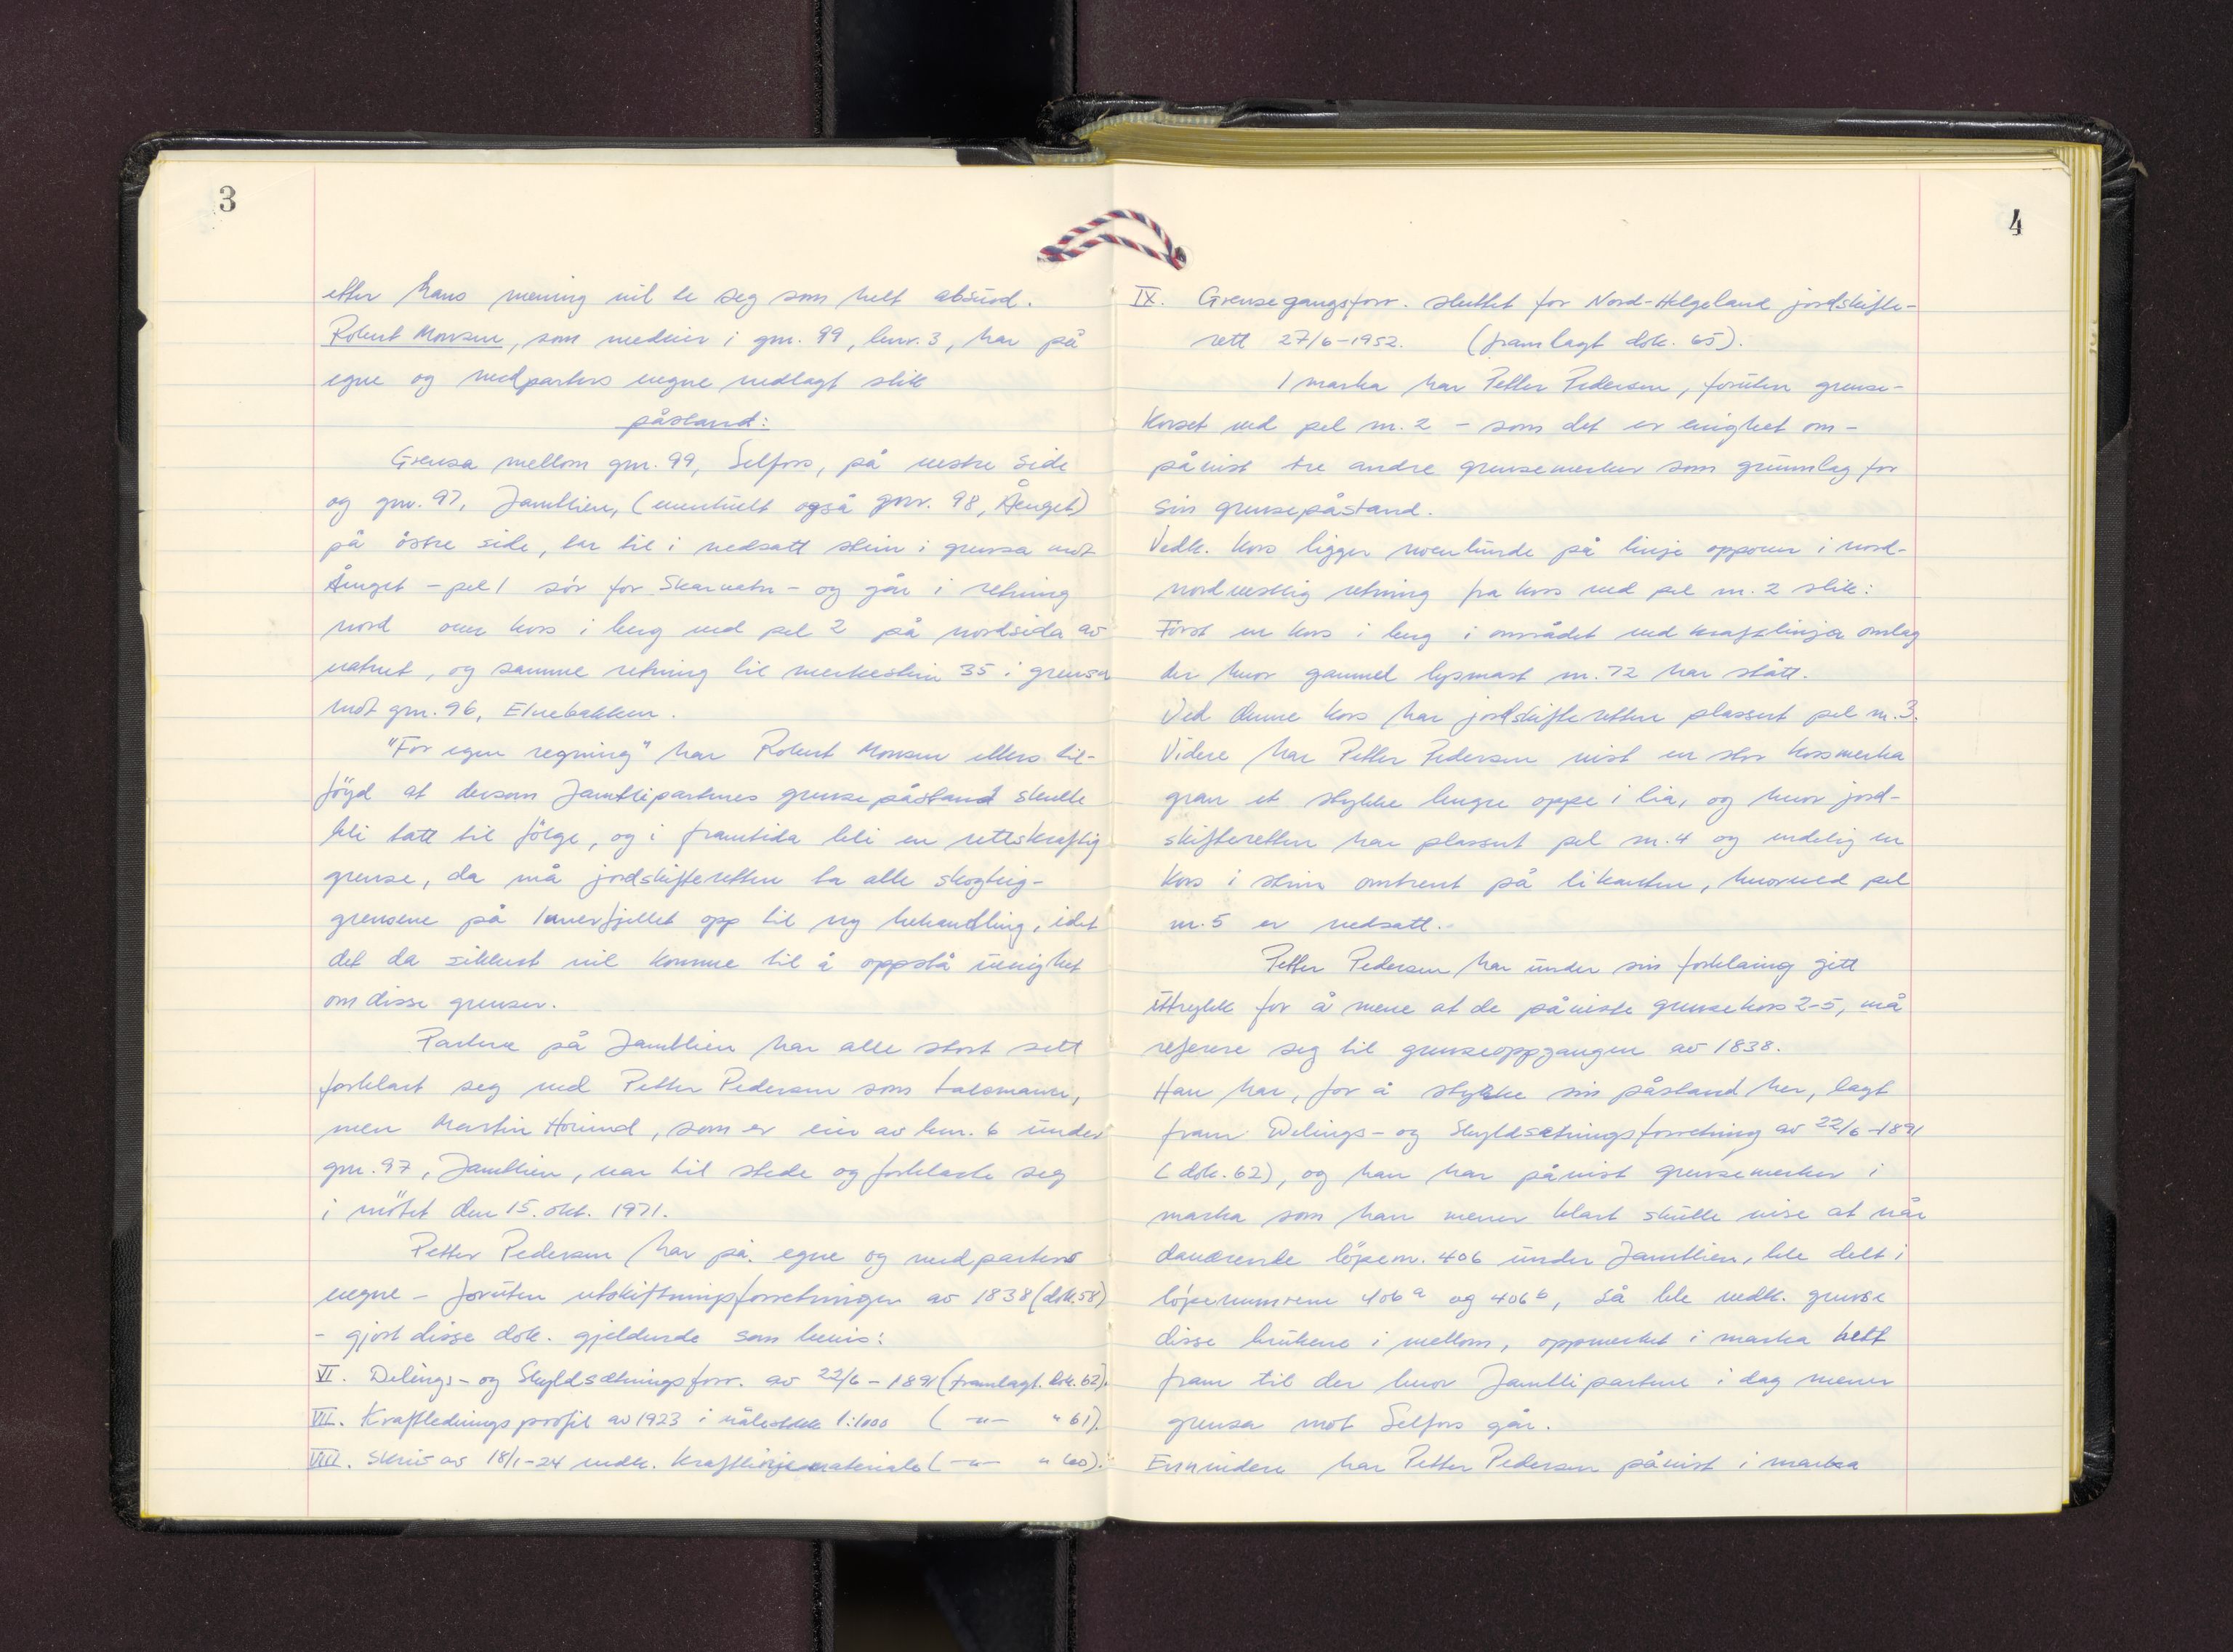 3
etter hans mening vil te seg som helt absurd.
Robert Monsen, som medeier i gnr. 99, bnr. 3, har på
egne og medparters vegne nedlagt slik
påstand:
Grensa mellom gnr. 99, Selfors, på vestre side
og gnr. 97, Jamtlien, (eventuelt også gnr. 98, Ånget)
på östre side, tar til i nedsatt stein i grensa mot
Ånget - pel 1 sör for Skarvatn - og går i retning
nord over kors i berg ved pel 2 på nordsida av
vatnet, og samme retning til merkestein 35 i grensa
mot gnr. 96, Elvebakken.
"For egen regning" har Robert Monsen ellers til-
föyd at dersom Jamtlipartenes grensepåstand skulle
bli tatt til fölge, og i framtida bli en rettskraftig
grense, da må jordskifteretten ta alle skogteig-
grensene på Innerfjellet opp til ny behandling, idet
det da sikkert vil komme til å oppstå uenighet
om disse grenser.
Partene på Jamtlien har alle stort sett
forklart seg med Petter Pedersen som talsmann,
men Martin Horind, som er eier av bnr. 6 under
gnr. 97, Jamtlien, var til stede og forklarte seg
i mötet den 15. okt. 1971.
Petter Pedersen har på egne og medparters
vegne - foruten utskiftningsforretningen av 1838 (dok. 58)
- gjort disse dok. gjeldende som bevis:
VI. Delings- og Skyldsætningsforr. av 22/6 - 1891 (framlagt. dok. 62).
VII. Kraftledningsprofil av 1923 i målestokk 1:1000 ( -"- " 61).
VIII. Skriv av 18/1-24 vedk. kraftlinjemateriale ( -"- " 60).
4
IX. Grensegangsforr. sluttet for Nord-Helgeland jordskifte-
rett 27/6-1952. (framlagt dok. 65).
I marka har Petter Pedersen, foruten grense-
korset ved pel nr. 2 - som det er enighet om -
påvist tre andre grensemerker som grunnlag for
sin grensepåstand.
Vedk. kors ligger noenlunde på linje oppover i nord-
nordvestlig retning fra kors ved pel nr. 2 slik:
Först en kors i berg i området ved kraftlinja omlag
der hvor gammel lysmast nr. 72 har stått.
Ved denne kors har jordskifteretten plassert pel nr. 3.
Videre har Petter Pedersen vist en stor korsmerka
gran et stykke lengre oppe i lia, og hvor jord-
skifteretten har plassert pel nr. 4 og endelig en
kors i stein omtrent på likanten, hvorved pel
nr. 5 er nedsatt.
Petter Pedersen har under sin forklaring gitt
uttrykk for å mene at de påviste grensekors 2-5, må
referere seg til grenseoppgangen av 1838.
Han har, for å stykke sin påstand her, lagt
fram Delings- og Skyldsætningsforretning av 22/6-1891
(dok. 62), og han har påvist grensemerker i
marka som han mener klart skulle vise at når
daværende löpenr. 406 under Jamtlien, ble delt i
löpenumrene 406 a og 406 b, så ble vedk. grense
disse brukene i mellom, oppmerket i marka helt
fram til der hvor Jamtlipartene i dag mener
grensa mot Selfors går.
Ennvidere har Petter Pedersen påvist i marka